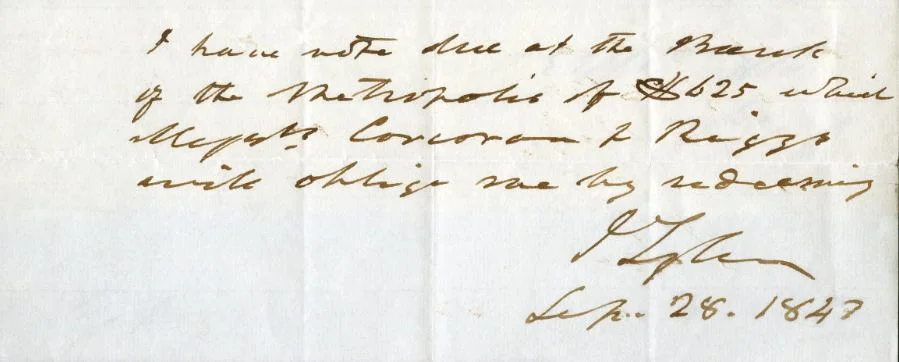 I have note due at the Bank
of the Metropolis of $625 which
Messrs Corcoran & Riggs
will oblige me by redeeming
J Tyler
Sep. 28. 1847